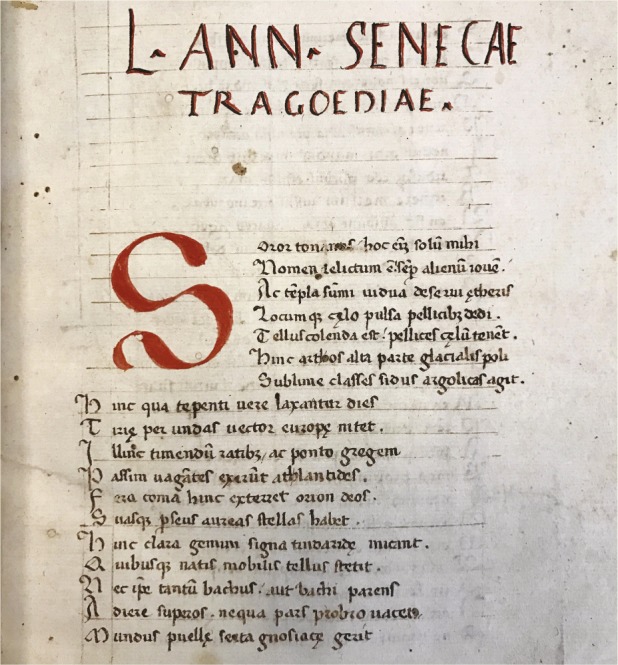 L. ANN. SENECAE
TRAGOEDIAE.
Soror tonantis hoc eī solū mihi
Nomen relictum ē: sēp alienū ioue.
Ac tēpla sūmi uidua deserui ętheris
Locumqꝫ cęlo pulsa pellicibꝫ dedi.
Tellus colenda est: pellices cęlū tenēt.
Hinc arthos alta parte glacialis poli
Sublime classes sidus argolicas agit.
Hinc qua tepenti uere laxantur dies
Tirię per undas uector europę nitet.
Illinc timendū ratibꝫ, ac ponto gregem
Passim uagātes exerūt athlantides.
Fera coma hinc exterret orion deos.
Suasqꝫ pseus aureas stellas habet.
Hinc clara gemini signa tindaridę micant.
Quibusqꝫ natis mobilis tellus stetit.
Nec ipe tantū bachus: aut bachi parens
Adiere superos. nequa pars probro uacet
Mundus puellę serta gnosiacę gerit